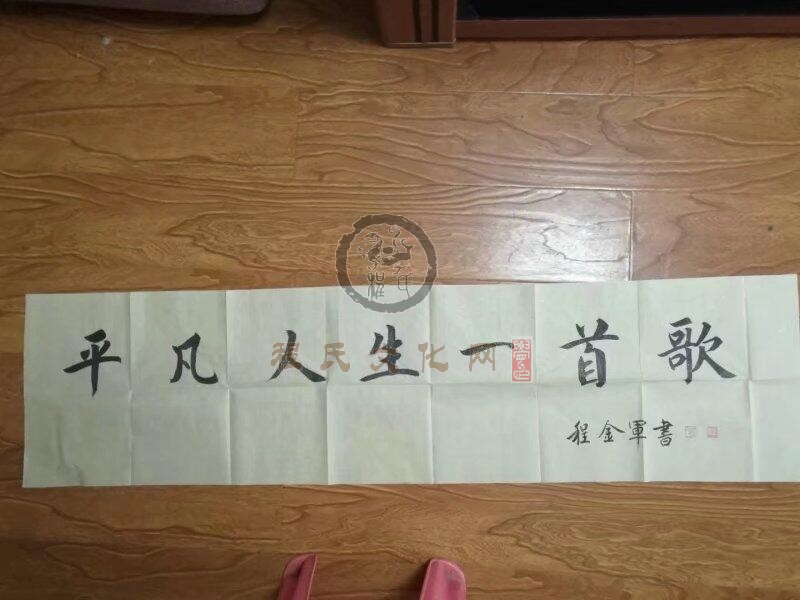 平凡人生一首歌
程金軍書
程氏文化网